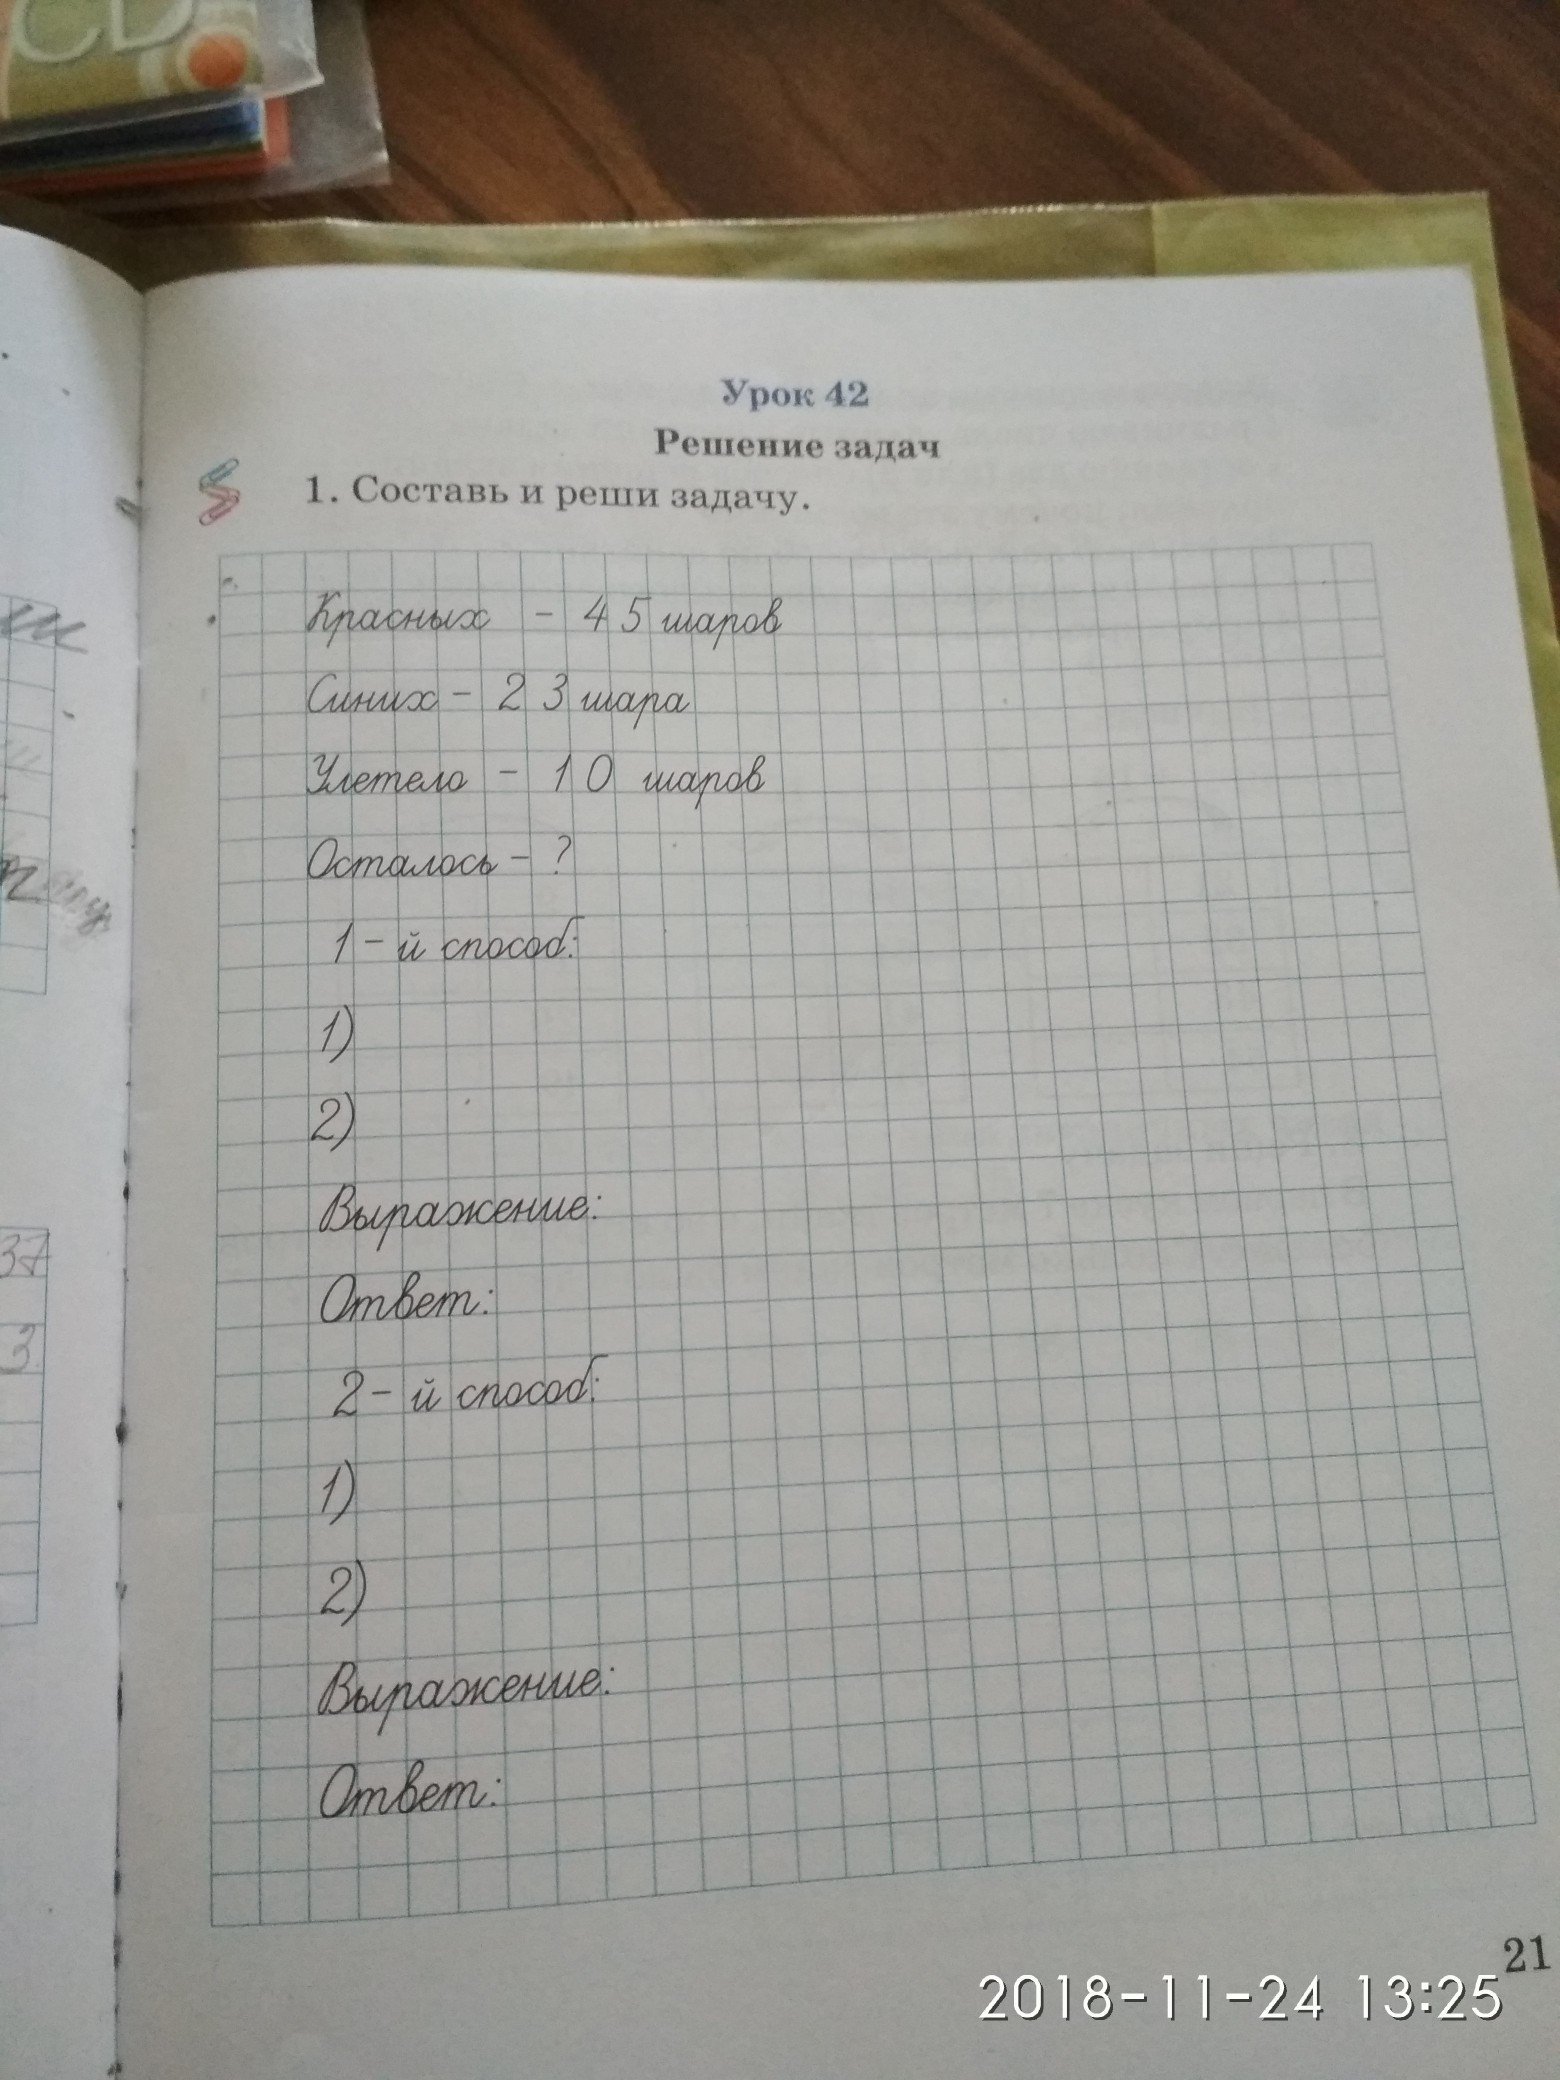 CD
Урок 42
Решение задач
1. Составь и реши задачу.
Красных - 45 шаров
Синих - 23 шара
Улетело - 10 шаров
Осталось - ?
1-й способ:
1)
2)
Выражение:
Ответ:
2-й способ:
1)
2)
Выражение:
Ответ:
37
3
21
2018-11-24 13:25